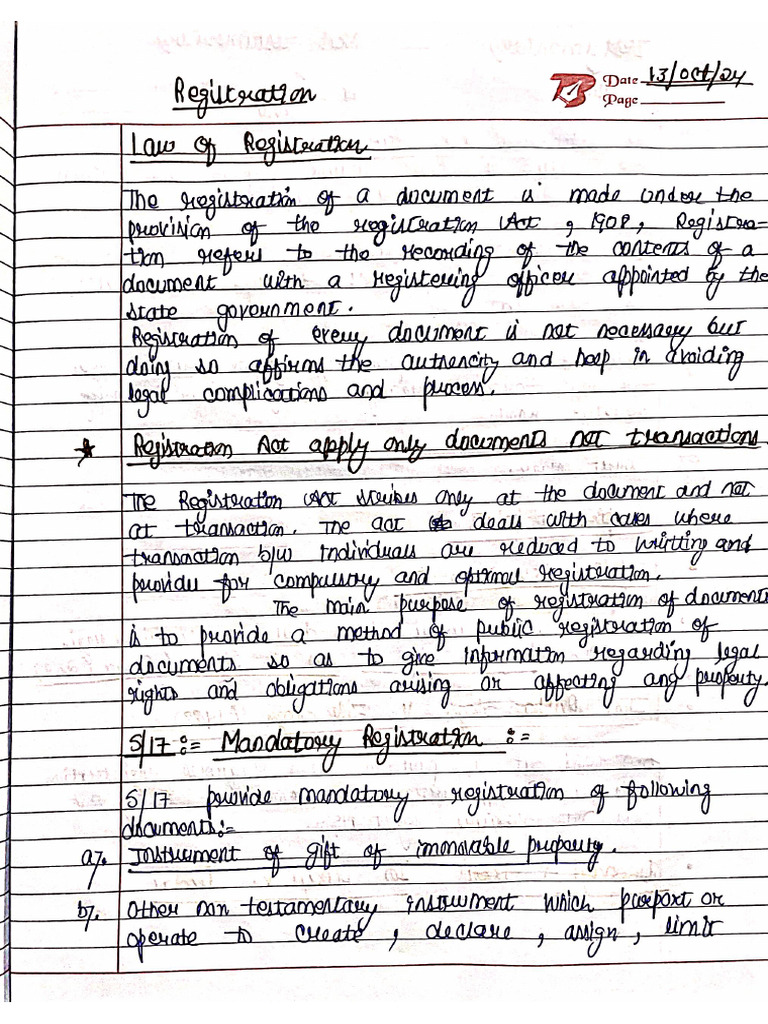 Registration
Date 13/Oct/24
Page
Law of Registration
The registration of a document is made under the
provision of the registration Act, 1908, Registra-
tion refers to the recording of the contents of a
document with a registering officer appointed by the
state government.
Registration of every document is not necessary but
doing so affirms the authencity and heep in avoiding
legal complications and process.
* Registration Act apply only documents not transactions
The Registration Act strikes only at the document and not
at transaction. The act deals with cases where
transaction b/w individuals are reduced to writting and
provides for compulsory and optional registration.
The main purpose of registration of documents
is to provide a method of public registration of
documents so as to give information regarding legal
rights and obligations arising or affecting any property.
S/17 :- Mandatory Registration :-
S/17 provide mandatory registration of following
documents:-
a). Instrument of gift of immovable property.
b). Other non testamentary instrument which purport or
operate to create, declare, assign, limit